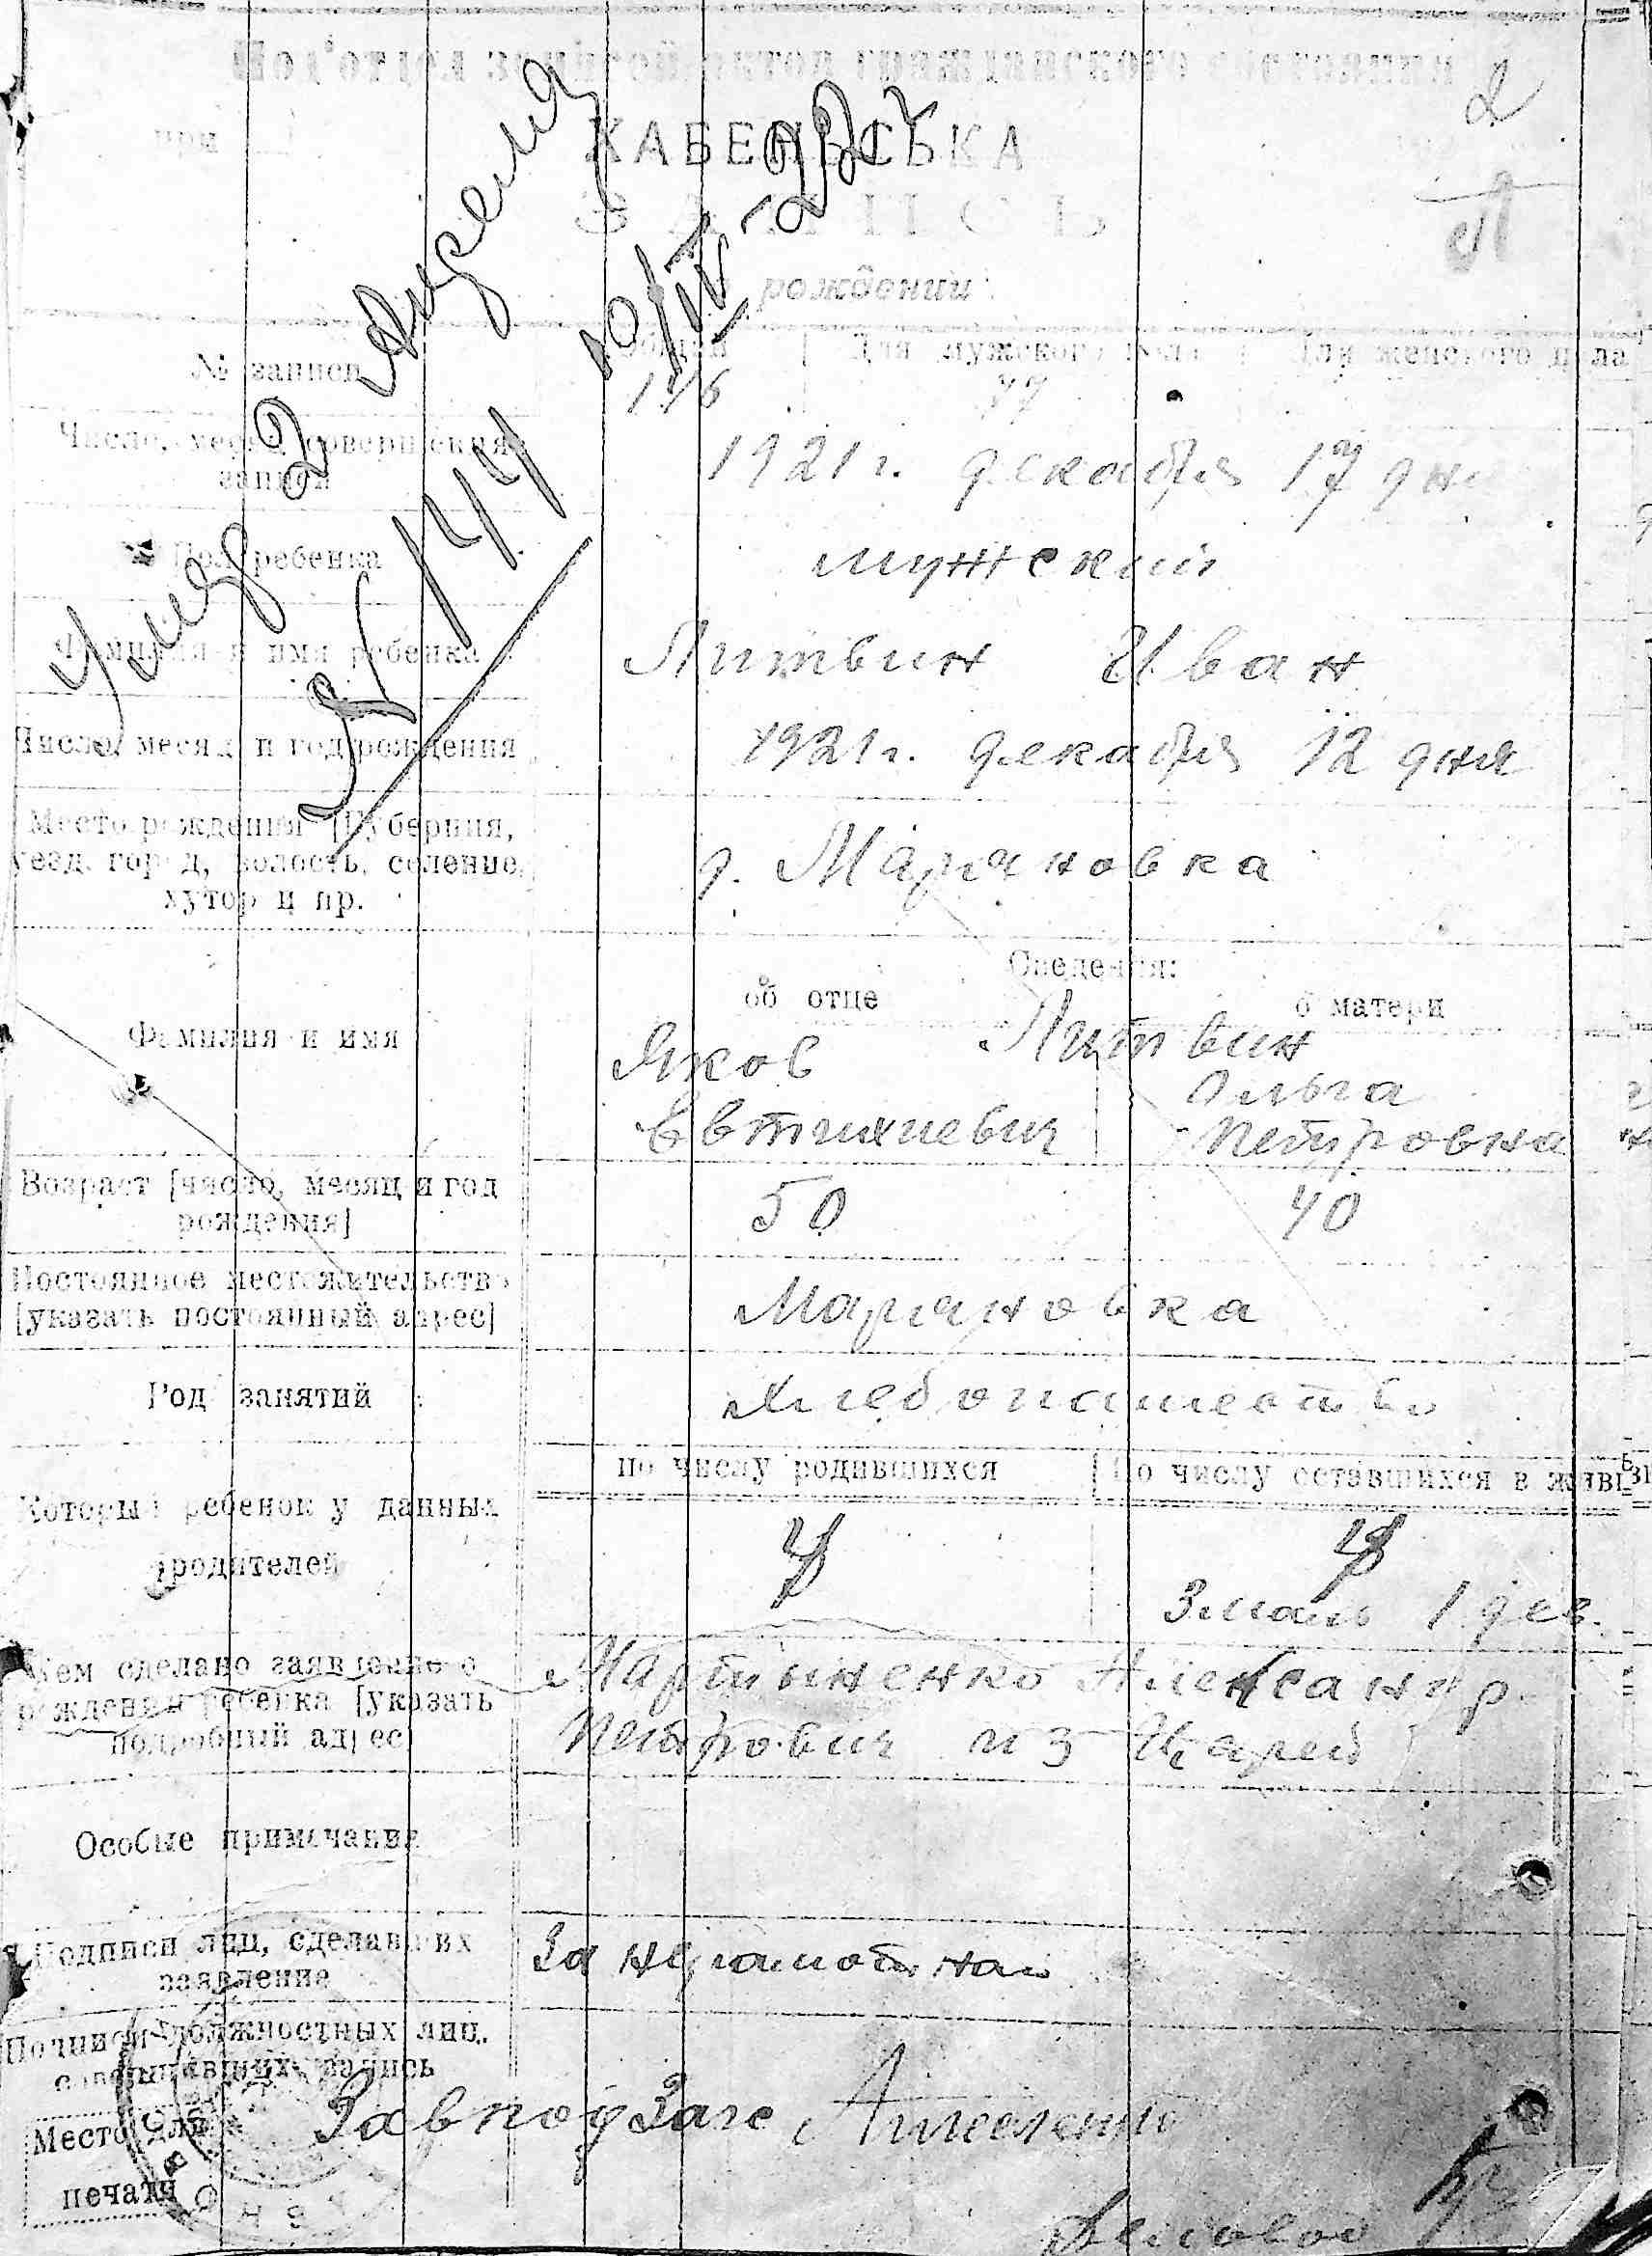 при
ХАБЕНСЬКА
2
ЗАПИСЬ
рождений
№ записи
Общий
Для мужского пола
Для женского пола
77
Число, месяц совершения
записи
1921 г. декабря 17 дня
Пол ребенка
мужский
Фамилия и имя ребенка
Литвин Иван
Число, месяц и год рождения
1921 г. декабря 12 дня
Место рождения [Губерния,
уезд, город, волость, селение,
хутор и пр.
д. Марияновка
Сведения:
об отце
о матери
Фамилия и имя
Литвин
Яков
Ольга
Евтихиевич
Петровна
Возраст [число, месяц и год
рождения]
50
40
Постоянное местожительство
[указать постоянный адрес]
Марияновка
Род занятий
Хлебопашество
по числу родившихся
По числу оставшихся в живых
Который ребенок у данных
родителей
3 мальч 1 дев.
Кем сделано заявление о
рождении ребенка [указать
подробный адрес
Мартыненко Александр
Петрович из
Особые примечания
Подписи лиц, сделавших
заявление
За неграмотн
Подписи должностных лиц,
совершивших запись
Завподзагс
Место для
печати